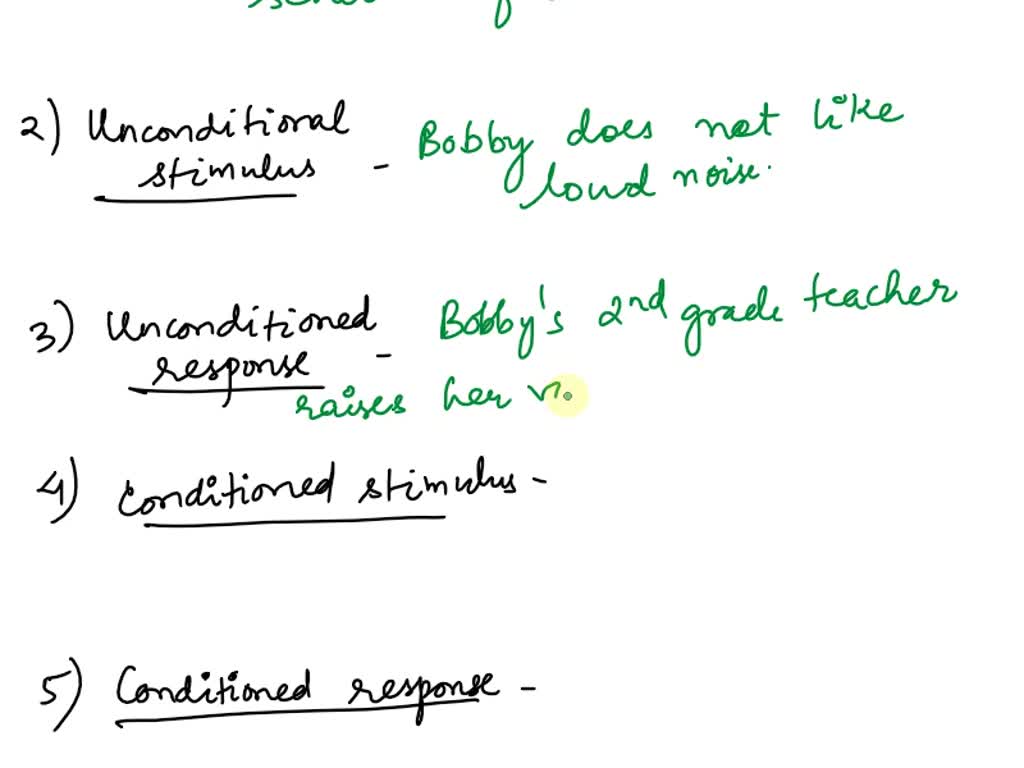 2) Unconditional - Bobby does not like
stimulus loud noise.
3) Unconditioned - Bobby's 2nd grade teacher
response raises her
4) Conditioned stimulus -
5) Conditioned response -